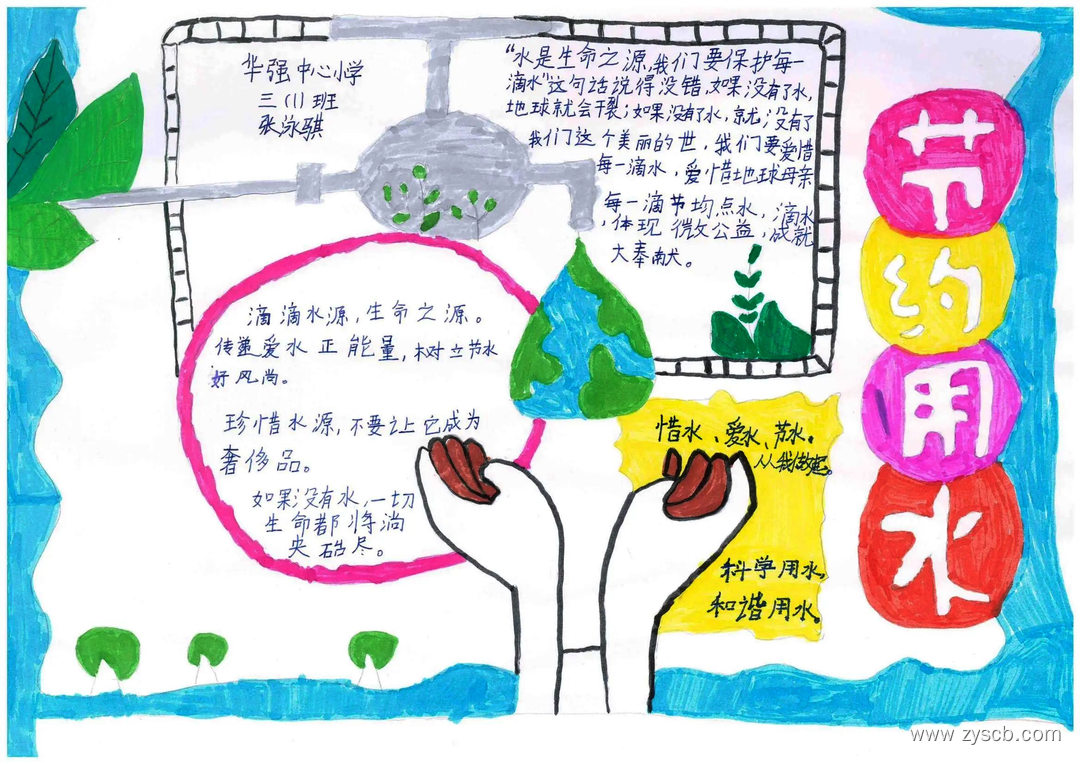 华强中心小学
三(1)班
张泳骐
"水是生命之源,我们要保护每一
滴水"这句话说得没错,如果没有了水,
地球就会干裂;如果没有了水,就没有了
我们这个美丽的世,我们要爱惜
每一滴水,爱惜地球母亲
每一滴节均点水,滴水
,体现微公益,成就
大奉献。
节约用水
滴滴水源,生命之源。
传递爱水正能量,树立节水
好风尚。
珍惜水源,不要让它成为
奢侈品。
如果没有水,一切
生命都将淌
央硞尽。
惜水、爱水、节水。
从我做起。
科学用水,
和谐用水。
www.zyscb.com